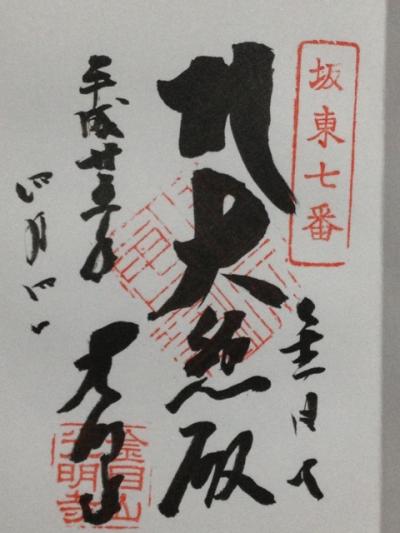 坂東七番
金目山
大悲殿
平成廿五年
四月四日
光明寺
金目山
光明寺